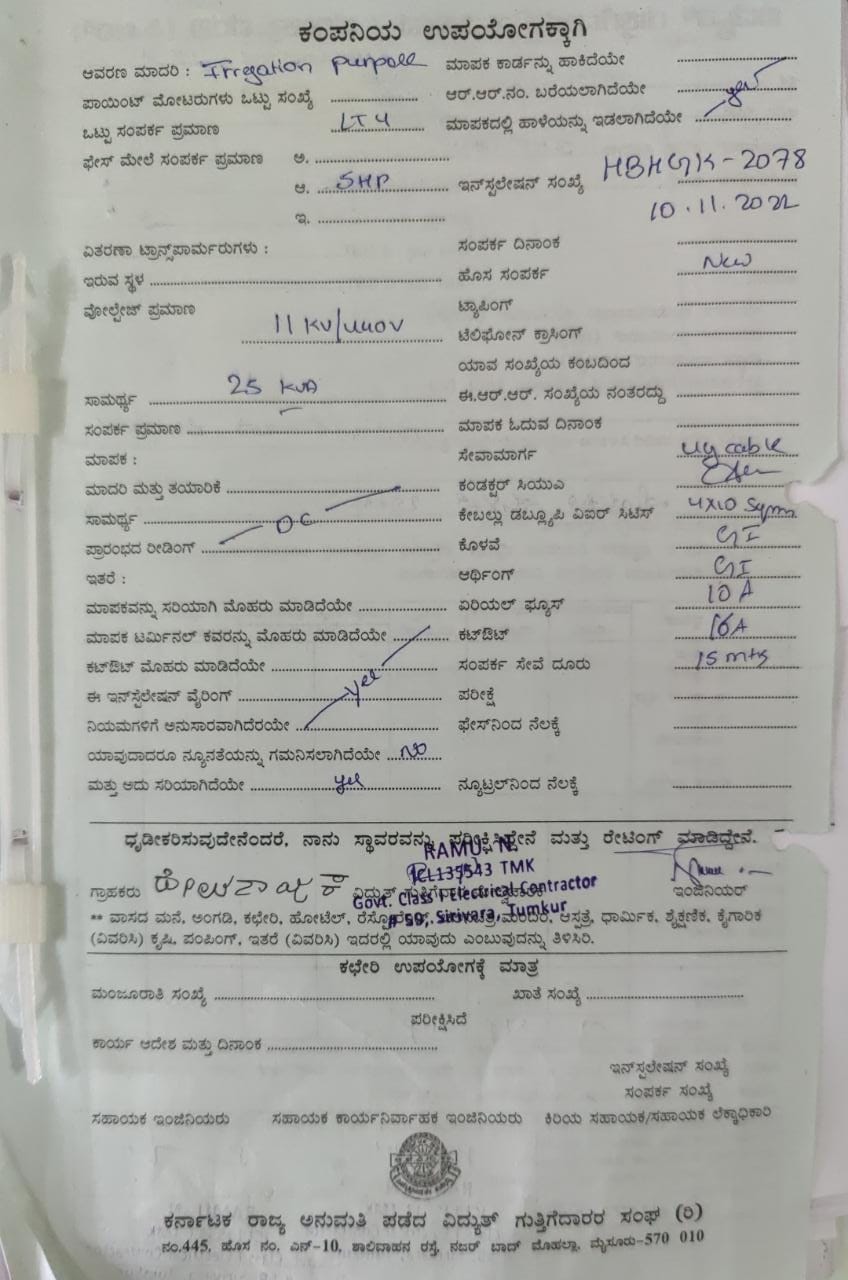 ಕಂಪನಿಯ ಉಪಯೋಗಕ್ಕಾಗಿ
ಆವರಣ ಮಾದರಿ : Irregation purpose ಮಾಪಕ ಕಾರ್ಡನ್ನು ಹಾಕಿದೆಯೇ
ಪಾಯಿಂಟ್ ಮೋಟರುಗಳು ಒಟ್ಟು ಸಂಖ್ಯೆ ............ ಆರ್.ಆರ್.ನಂ. ಬರೆಯಲಾಗಿದೆಯೇ ............ yes
ಒಟ್ಟು ಸಂಪರ್ಕ ಪ್ರಮಾಣ LT4 ಮಾಪಕದಲ್ಲಿ ಹಾಳೆಯನ್ನು ಇಡಲಾಗಿದೆಯೇ ............
ಫೇಸ್ ಮೇಲೆ ಸಂಪರ್ಕ ಪ್ರಮಾಣ ಅ. ............
ಆ. 5HP ಇನ್‌ಸ್ಟಲೇಷನ್ ಸಂಖ್ಯೆ HBHGK-2078
ಇ. ............ 10.11.2022
ವಿತರಣಾ ಟ್ರಾನ್ಸ್‌ಪಾರ್ಮರುಗಳು : ಸಂಪರ್ಕ ದಿನಾಂಕ ............
ಇರುವ ಸ್ಥಳ ............ ಹೊಸ ಸಂಪರ್ಕ New
ವೋಲ್ಟೇಜ್ ಪ್ರಮಾಣ ಟ್ಯಾಪಿಂಗ್ ............
11 KV/440V ಟೆಲಿಫೋನ್ ಕ್ರಾಸಿಂಗ್ ............
ಯಾವ ಸಂಖ್ಯೆಯ ಕಂಬದಿಂದ ............
ಸಾಮರ್ಥ್ಯ 25 KVA ಈ.ಆರ್.ಆರ್. ಸಂಖ್ಯೆಯ ನಂತರದ್ದು ............
ಸಂಪರ್ಕ ಪ್ರಮಾಣ ............ ಮಾಪಕ ಓದುವ ದಿನಾಂಕ ............
ಮಾಪಕ : ಸೇವಾಮಾರ್ಗ ug cable
ಮಾದರಿ ಮತ್ತು ತಯಾರಿಕೆ ............ ಕಂಡಕ್ಟರ್ ಸಿಯುಎ
ಸಾಮರ್ಥ್ಯ ............ DC ಕೇಬಲ್ಲು ಡಬ್ಲ್ಯೂಪಿ ವಿಐರ್ ಸಿಟಿಸ್ 4X10 Sqmm
ಪ್ರಾರಂಭದ ರೀಡಿಂಗ್ ............ ಕೊಳವೆ GI
ಇತರೆ : ಆರ್ಥಿಂಗ್ GI
ಮಾಪಕವನ್ನು ಸರಿಯಾಗಿ ಮೊಹರು ಮಾಡಿದೆಯೇ ............ ಏರಿಯಲ್ ಫ್ಯೂಸ್ 10 A
ಮಾಪಕ ಟರ್ಮಿನಲ್ ಕವರನ್ನು ಮೊಹರು ಮಾಡಿದೆಯೇ ............ ಕಟ್‌ಔಟ್ 16A
ಕಟ್‌ಔಟ್ ಮೊಹರು ಮಾಡಿದೆಯೇ ............ ಸಂಪರ್ಕ ಸೇವೆ ದೂರು 15 mts
ಈ ಇನ್‌ಸ್ಟೆಲೇಷನ್ ವೈರಿಂಗ್ ............ yes ಪರೀಕ್ಷೆ ............
ನಿಯಮಗಳಿಗೆ ಅನುಸಾರವಾಗಿದೆರಯೇ ............ ಫೇಸ್‌ನಿಂದ ನೆಲಕ್ಕೆ ............
ಯಾವುದಾದರೂ ನ್ಯೂನತೆಯನ್ನು ಗಮನಿಸಲಾಗಿದೆಯೇ NO
ಮತ್ತು ಅದು ಸರಿಯಾಗಿದೆಯೇ yes ನ್ಯೂಟ್ರಲ್‌ನಿಂದ ನೆಲಕ್ಕೆ ............
ಧೃಡೀಕರಿಸುವುದೇನೆಂದರೆ, ನಾನು ಸ್ಥಾವರವನ್ನು ಪರೀಕ್ಷಿಸಿದ್ದೇನೆ ಮತ್ತು ರೇಟಿಂಗ್ ಮಾಡಿದ್ದೇನೆ.
RAMU. N
ICL135543 TMK
ಗ್ರಾಹಕರು ಇಂಜಿನಿಯರ್
Govt. Class I Electrical Contractor
# 59, Sirivara, Tumkur
** ವಾಸದ ಮನೆ, ಅಂಗಡಿ, ಕಛೇರಿ, ಹೋಟೆಲ್, ಆಸ್ಪತ್ರೆ, ಧಾರ್ಮಿಕ, ಶೈಕ್ಷಣಿಕ, ಕೈಗಾರಿಕ
(ವಿವರಿಸಿ) ಕೃಷಿ, ಪಂಪಿಂಗ್, ಇತರೆ (ವಿವರಿಸಿ) ಇದರಲ್ಲಿ ಯಾವುದು ಎಂಬುವುದನ್ನು ತಿಳಿಸಿರಿ.
ಕಛೇರಿ ಉಪಯೋಗಕ್ಕೆ ಮಾತ್ರ
ಮಂಜೂರಾತಿ ಸಂಖ್ಯೆ ............ ಖಾತೆ ಸಂಖ್ಯೆ ............
ಪರೀಕ್ಷಿಸಿದೆ
ಕಾರ್ಯ ಆದೇಶ ಮತ್ತು ದಿನಾಂಕ ............
ಇನ್‌ಸ್ಟಲೇಷನ್ ಸಂಖ್ಯೆ
ಸಂಪರ್ಕ ಸಂಖ್ಯೆ
ಸಹಾಯಕ ಇಂಜಿನಿಯರು ಸಹಾಯಕ ಕಾರ್ಯನಿರ್ವಾಹಕ ಇಂಜಿನಿಯರು ಕಿರಿಯ ಸಹಾಯಕ/ಸಹಾಯಕ ಲೆಕ್ಕಾಧಿಕಾರಿ
ಕರ್ನಾಟಕ ರಾಜ್ಯ ಅನುಮತಿ ಪಡೆದ ವಿದ್ಯುತ್ ಗುತ್ತಿಗೆದಾರರ ಸಂಘ (ರಿ)
ನಂ.445, ಹೊಸ ನಂ. ಎನ್-10, ಶಾಲಿವಾಹನ ರಸ್ತೆ, ನಜರ್ ಬಾದ್ ಮೊಹಲ್ಲಾ, ಮೈಸೂರು-570 010